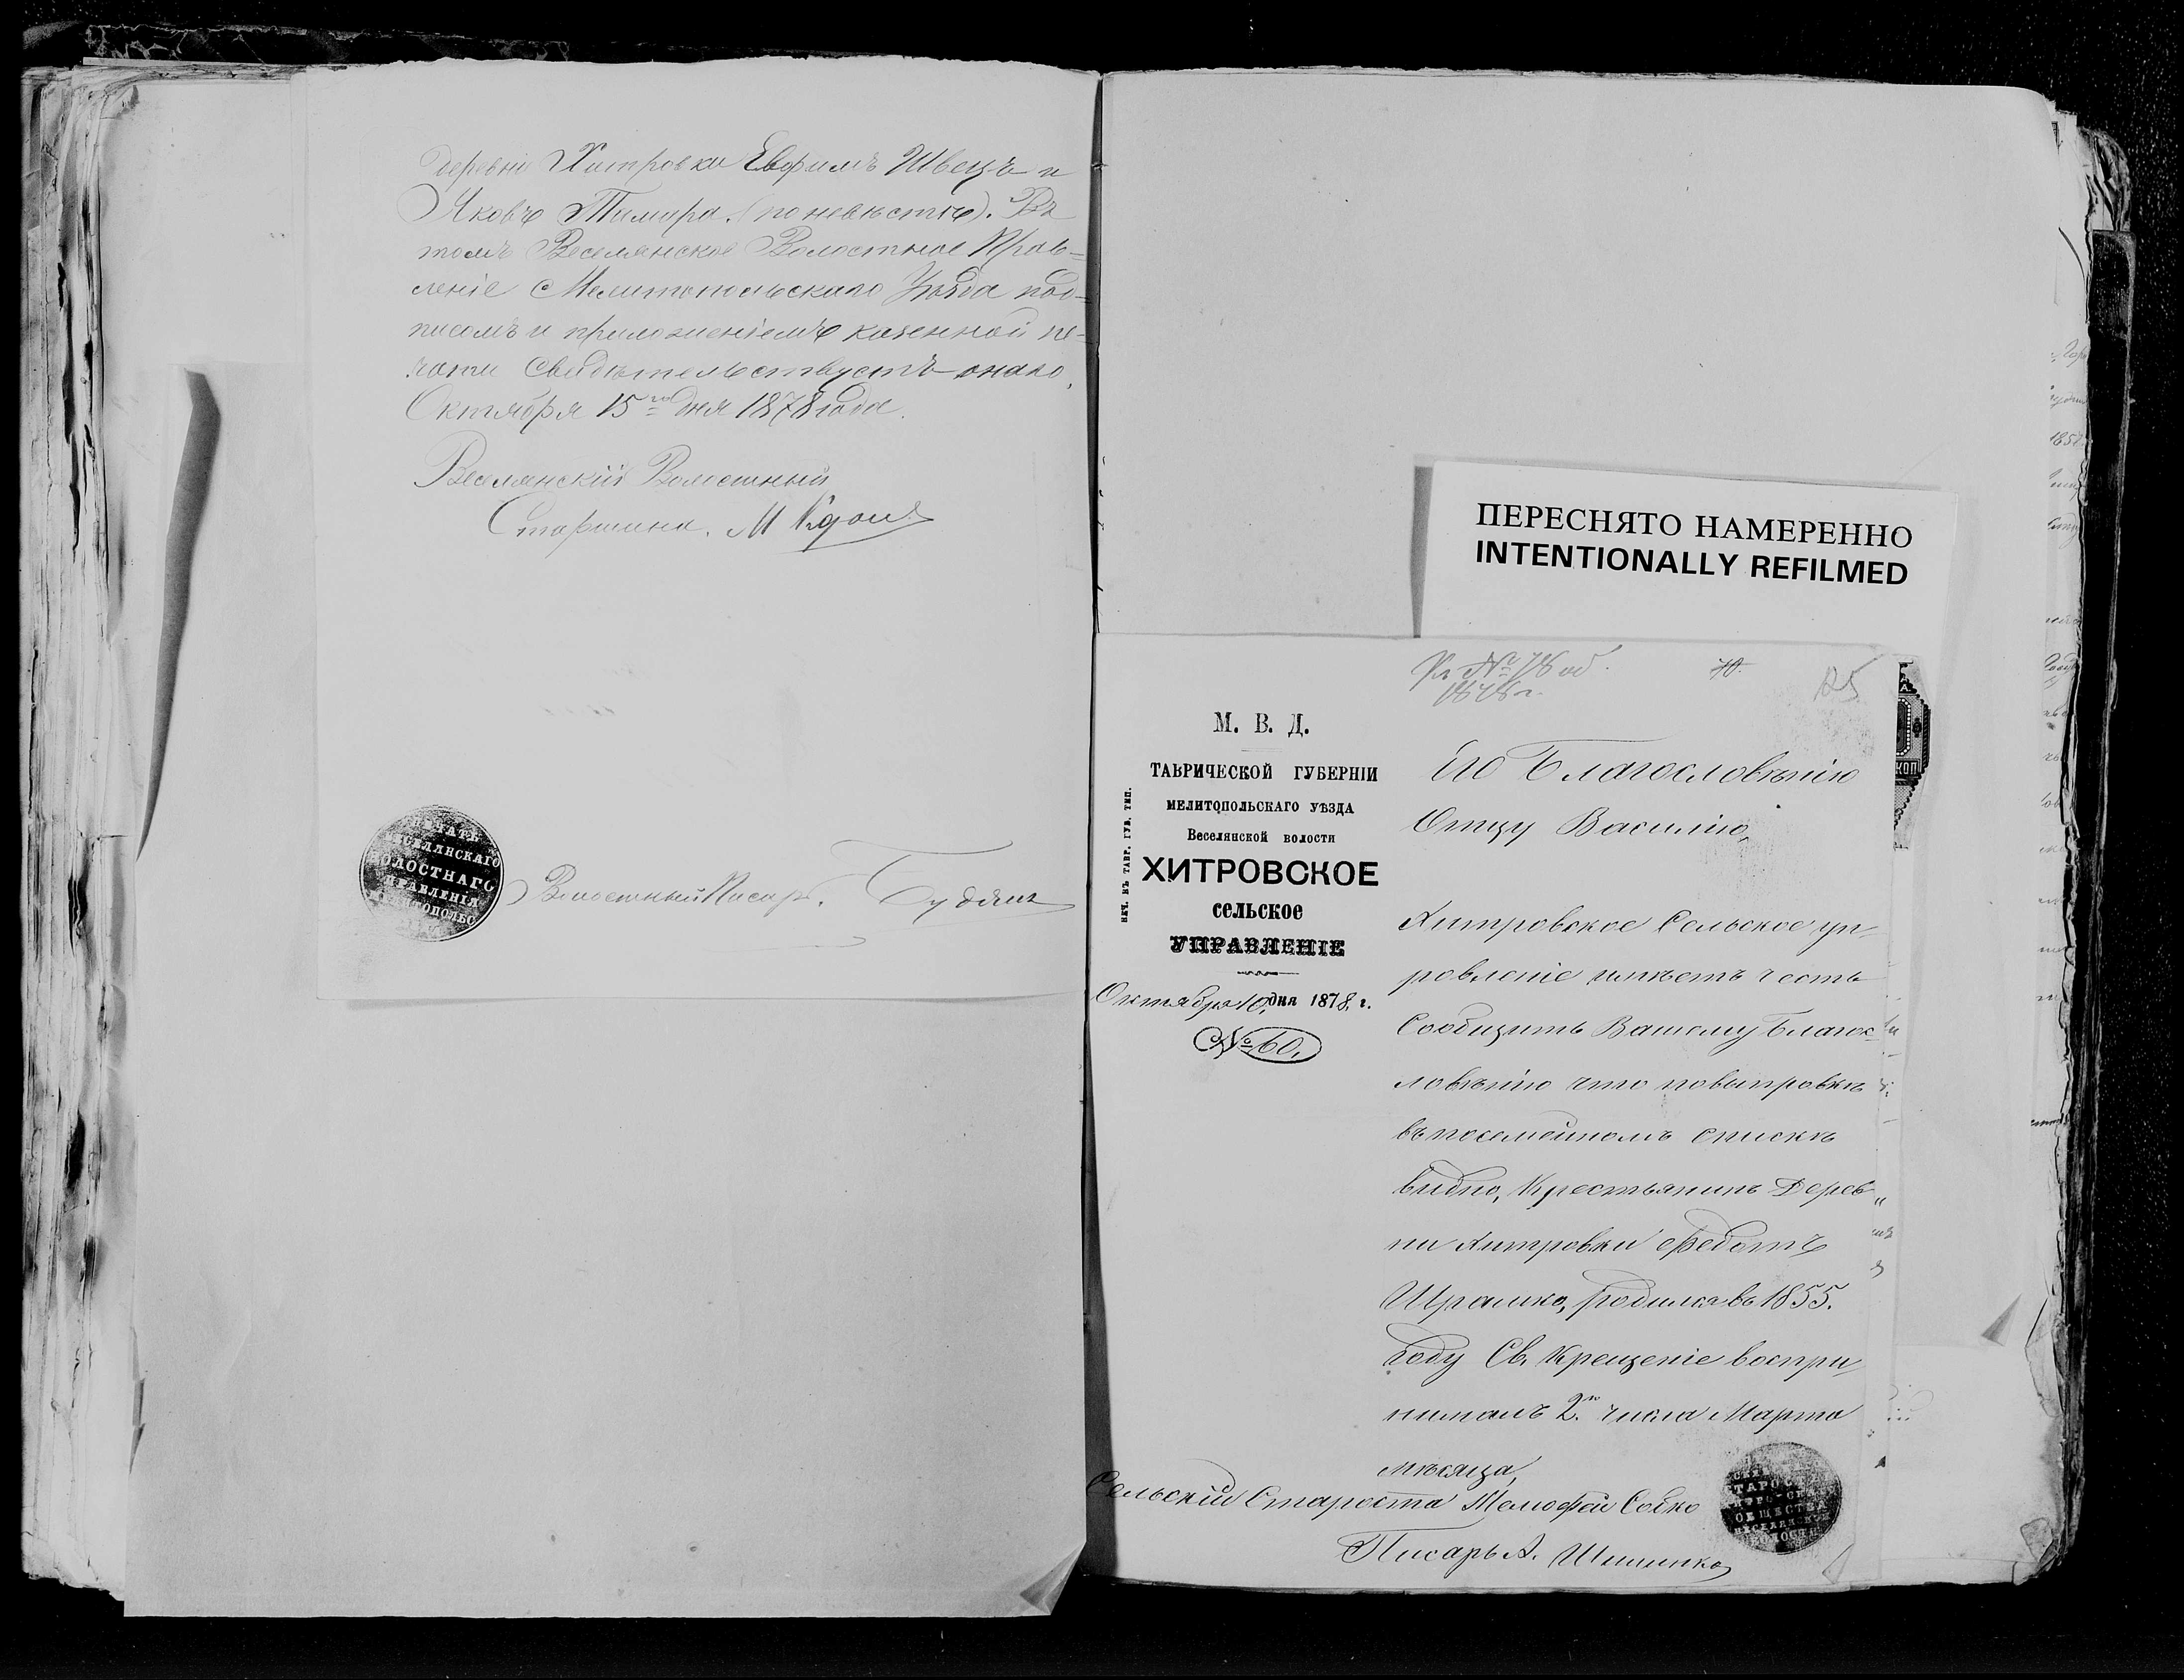 деревни Хитровки Евфимъ Швецъ и
Яковъ Тимара. (по невѣстѣ). Въ
томъ Веселянское Волостное Прав=
леніе Мелитопольскаго Уѣзда под=
писомъ и приложеніемъ казенной пе-
чати свидѣтельствуетъ
Октября 15го дня 1878 года.
Веселянскій Волостный
Старшина. М
ПЕЧАТЬ
ВЕСЕЛЯНСКАГО
ВОЛОСТНАГО
ПРАВЛЕНІЯ
Волостный Писарь.
ПЕРЕСНЯТО НАМЕРЕННО
INTENTIONALLY REFILMED
№ 78 об.
1878 г.
125
М. В. Д.
ТАВРИЧЕСКОЙ ГУБЕРНІИ
МЕЛИТОПОЛЬСКАГО УѢЗДА
Веселянской волости
ХИТРОВСКОЕ
сельское
УПРАВЛЕНІЕ
Октября 10, дня 1878, г.
№ 60,
ПЕЧ. ВЪ ТАВР. ГУБ. ТИП.
Его Благословѣнію
Отцу Василію,
Хитровское Сельское уп-
ровленіе имѣетъ честь
Сообщить Вашему Благос-
ловѣнію что повыправкѣ
въ посемейномъ спискѣ
видно, Крестьянинъ Дерев„
ни Хитровки Федотъ
Шрамко, родился въ 1855.
году Св. Крещеніе воспри
нималъ 2го числа Марта
мѣсяца,
Сельскій Староста Собко
Писарь А.
КОП